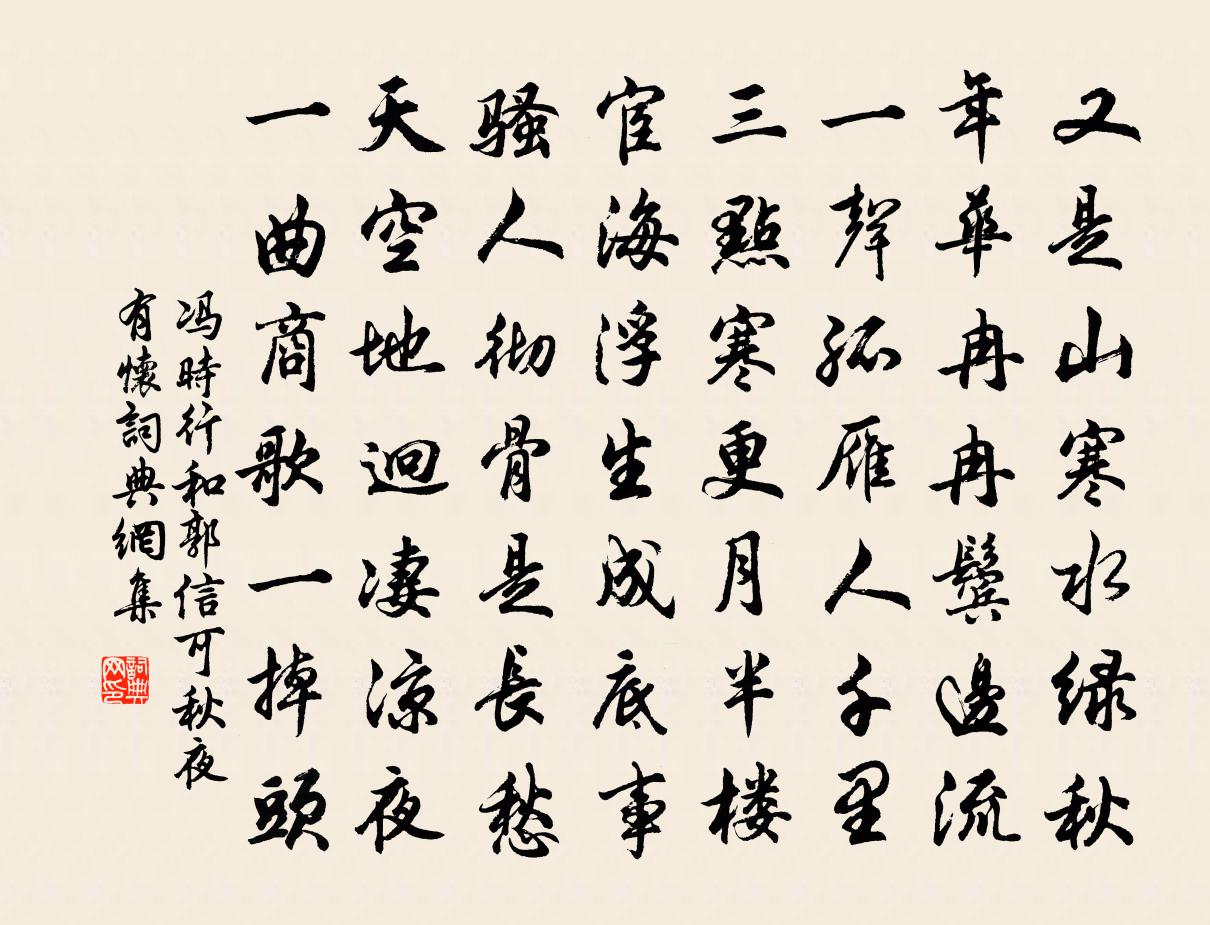 又是山寒水绿秋
年華冉冉鬓邊流
一聲孤雁人千里
三點寒更月半楼
宦海浮生成底事
骚人彻骨是長愁
天空地迥凄涼夜
一曲商歌一掉頭
冯時行和郭信可秋夜
有懷詞典網集
詞典网印